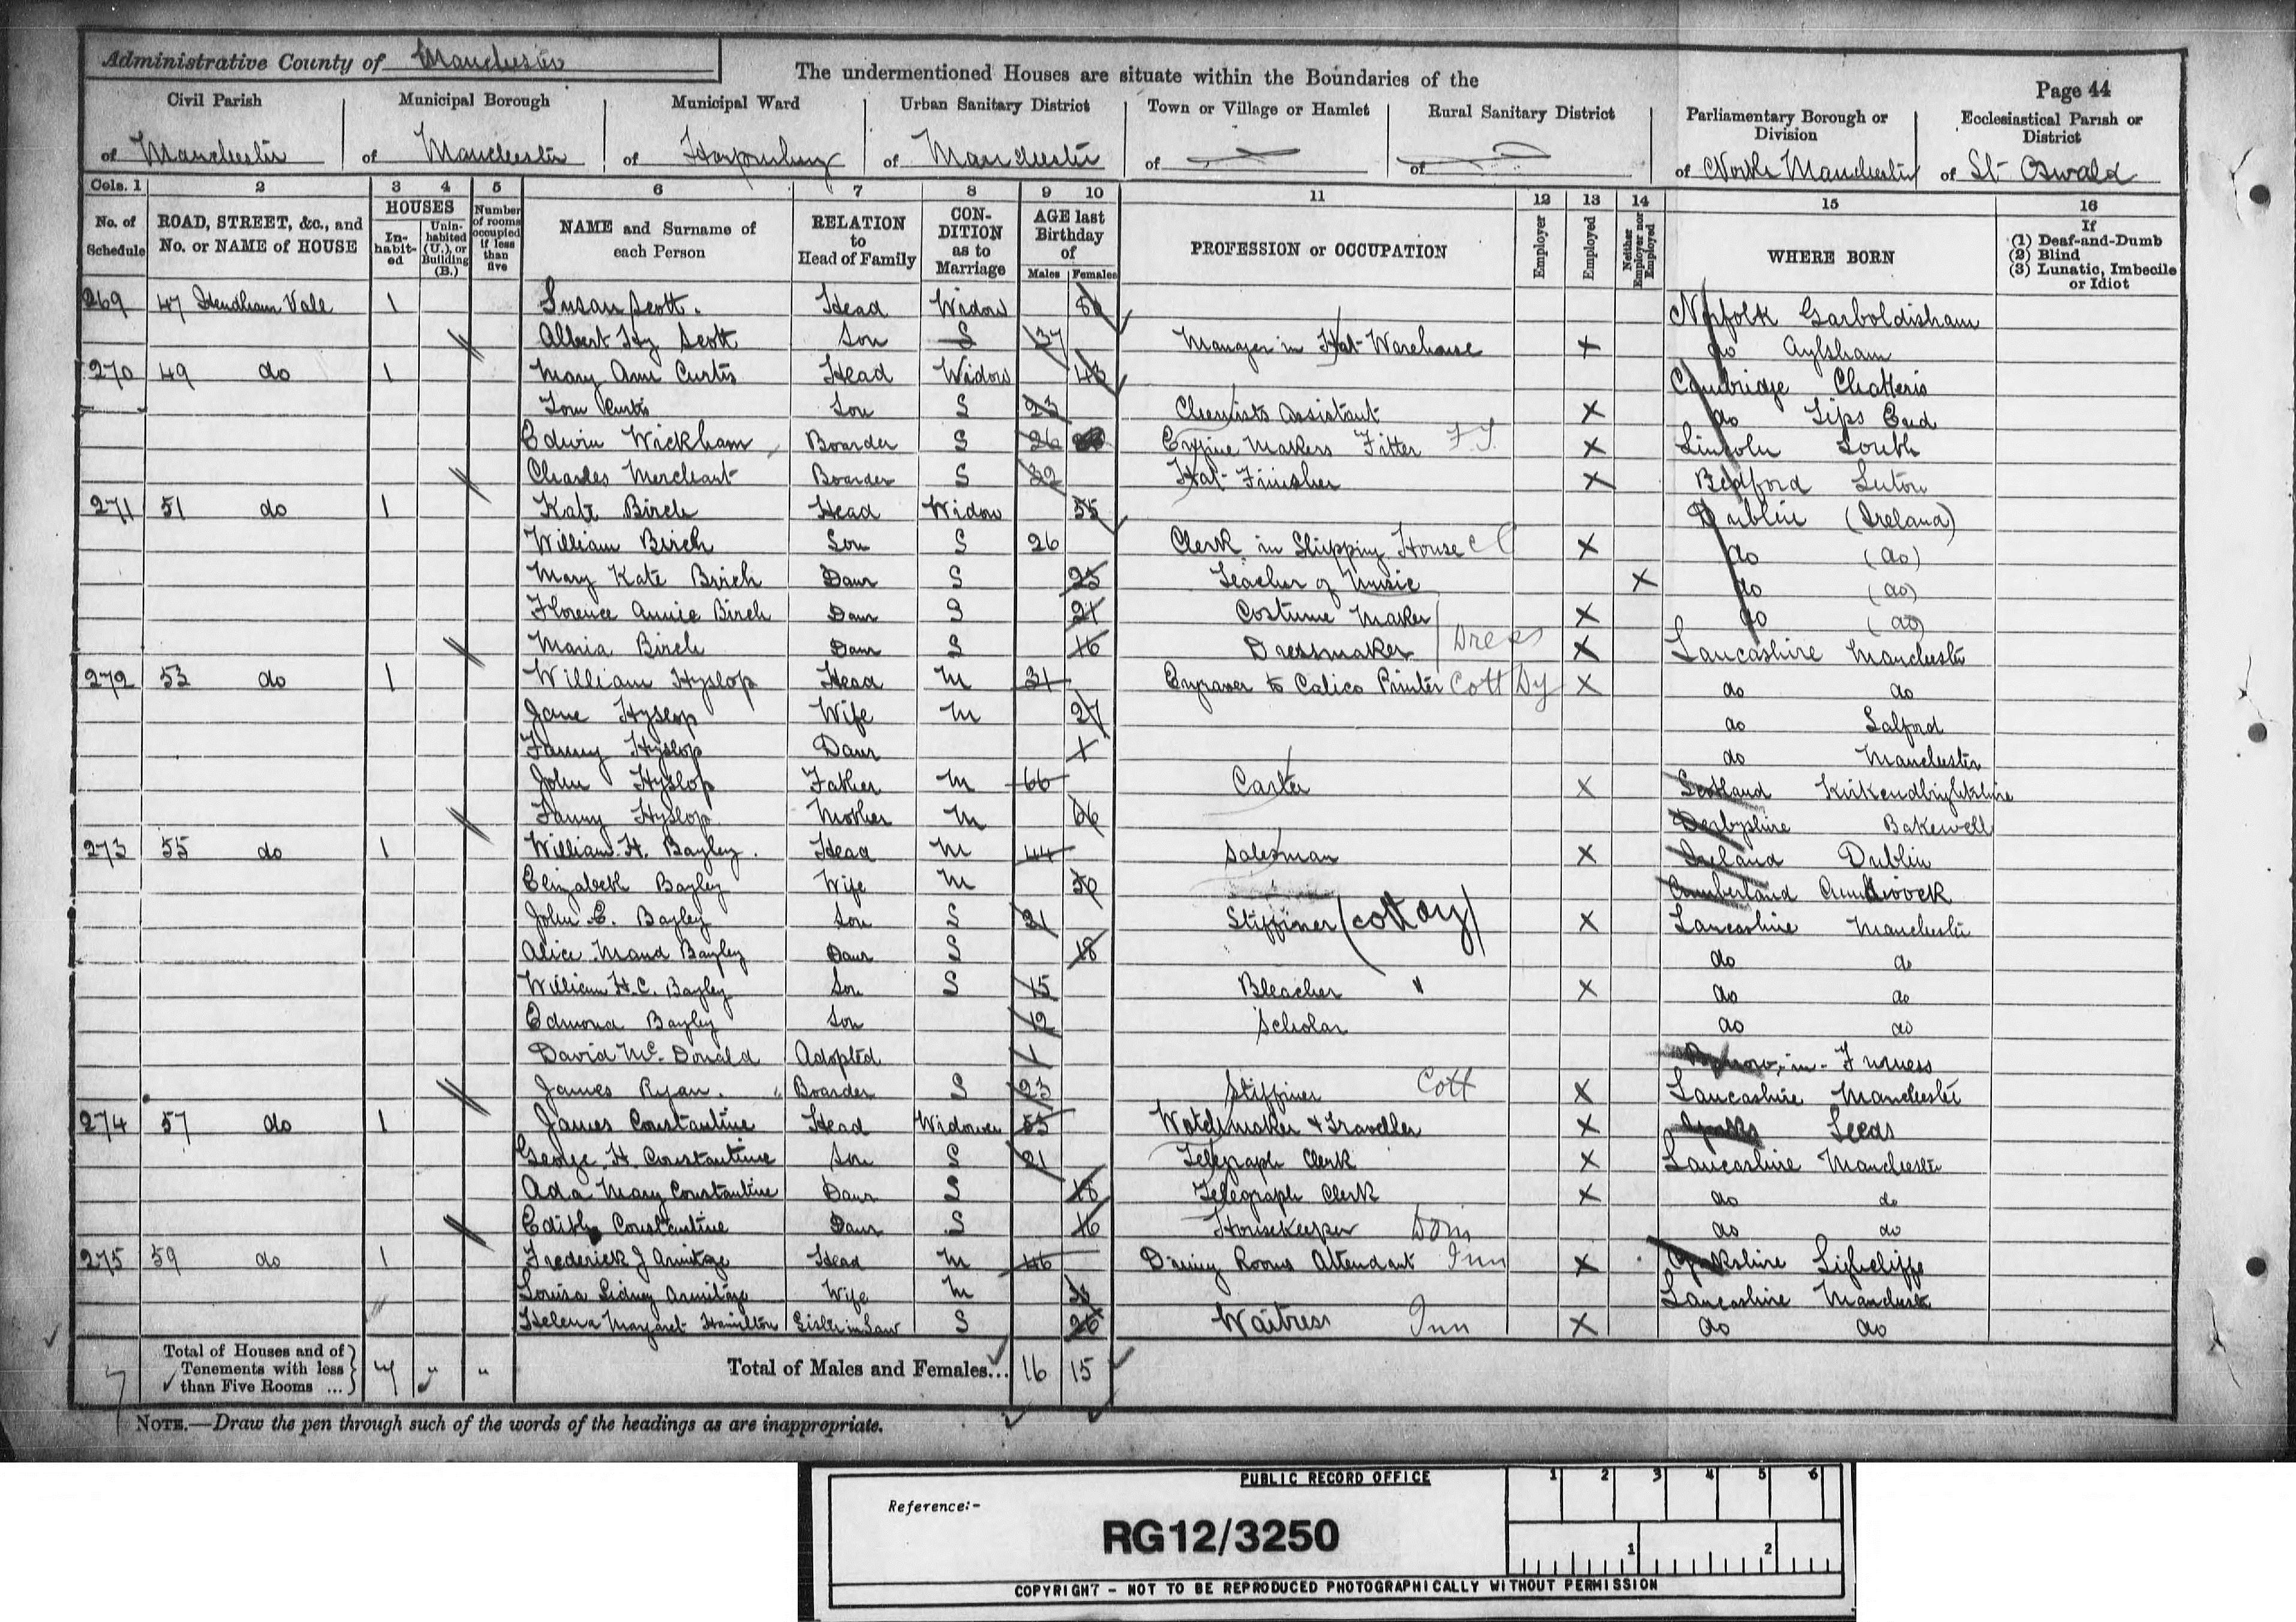 Administrative County of Manchester
The undermentioned Houses are situate within the Boundaries of the
Page 44
Civil Parish of Manchester
Municipal Borough of Manchester
Municipal Ward of Harpurhey
Urban Sanitary District of Manchester
Town or Village or Hamlet of
Rural Sanitary District of
Parliamentary Borough or Division of North Manchester
Ecclesiastical Parish or District of St Oswald
Cols. 1 2 3 4 5 6 7 8 9 10 11 12 13 14 15 16
No. of Schedule
ROAD, STREET, &c., and No. or NAME of HOUSE
HOUSES
In-habit-ed
Unin-habited (U.), or Building (B.)
Number of rooms occupied if less than five
NAME and Surname of each Person
RELATION to Head of Family
CON-DITION as to Marriage
AGE last Birthday of
Males Females
PROFESSION or OCCUPATION
Employer
Employed
Neither Employer nor Employed
WHERE BORN
If
(1) Deaf-and-Dumb
(2) Blind
(3) Lunatic, Imbecile or Idiot
269 47 Hendham Vale 1 Susan Scott. Head Widow Norfolk Garboldisham
Albert Hy Scott Son S 37 Manager in Hat Warehouse X do Aylsham
270 49 do 1 Mary Ann Curtis Head Widow 43 Cambridge Chatteris
Tom Curtis Son S 23 Chemists Assistant X do Tips End
Edwin Wickham Boarder S 26 Engine Makers Fitter F.T. X Lincoln Louth
Charles Merchant Boarder S 32 Hat Finisher X Bedford Luton
271 51 do 1 Kate Birch Head Widow 55 Dublin (Ireland)
William Birch Son S 26 Clerk in Shipping House C C X do (do)
Mary Kate Birch Daur S 25 Teacher of Music X do (do)
Florence Annie Birch Daur S 21 Costume Maker X do (do)
Maria Birch Daur S 16 Dressmaker Dress X Lancashire Manchester
272 53 do 1 William Hyslop Head M 31 Engraver to Calico Printer Cott Dy X do do
Jane Hyslop Wife M 27 do Salford
Fanny Hyslop Daur do Manchester
John Hyslop Father M 66 Carter X Scotland Kirkcudbrightshire
Fanny Hyslop Mother M 66 Derbyshire Bakewell
273 55 do 1 William H. Bayley. Head M 44 Salesman X Ireland Dublin
Elizabeth Bayley Wife M Cumberland
John E. Bayley Son S 21 Stiffiner (Cott Dy) X Lancashire Manchester
Alice Maud Bayley Daur S 18 do do
William H.C. Bayley Son S 15 Bleacher " X do do
Edmond Bayley Son 12 Scholar do do
David Mc Donald Adopted 1 Barrow-in-Furness
James Ryan. Boarder S 23 Stiffiner Cott X Lancashire Manchester
274 57 do 1 James Constantine Head Widower 55 Watchmaker & Traveller X Yorks Leeds
George H. Constantine Son S 21 Telegraph Clerk X Lancashire Manchester
Ada Mary Constantine Daur S 18 Telegraph Clerk X do do
Edith Constantine Daur S 16 Housekeeper Dom do do
275 59 do 1 Frederick J Armitage Head M 46 Dining Rooms Attendant Inn X Yorkshire Lightcliffe
Louisa Sidney Armitage Wife M Lancashire Manchester
Helena Margaret Hamilton Sister in Law S 26 Waitress Inn X do do
Total of Houses and of Tenements with less than Five Rooms ... 7 " "
Total of Males and Females... 16 15
NOTE.—Draw the pen through such of the words of the headings as are inappropriate.
PUBLIC RECORD OFFICE
1 2 3 4 5 6
Reference:-
RG12/3250
1 2
COPYRIGHT - NOT TO BE REPRODUCED PHOTOGRAPHICALLY WITHOUT PERMISSION